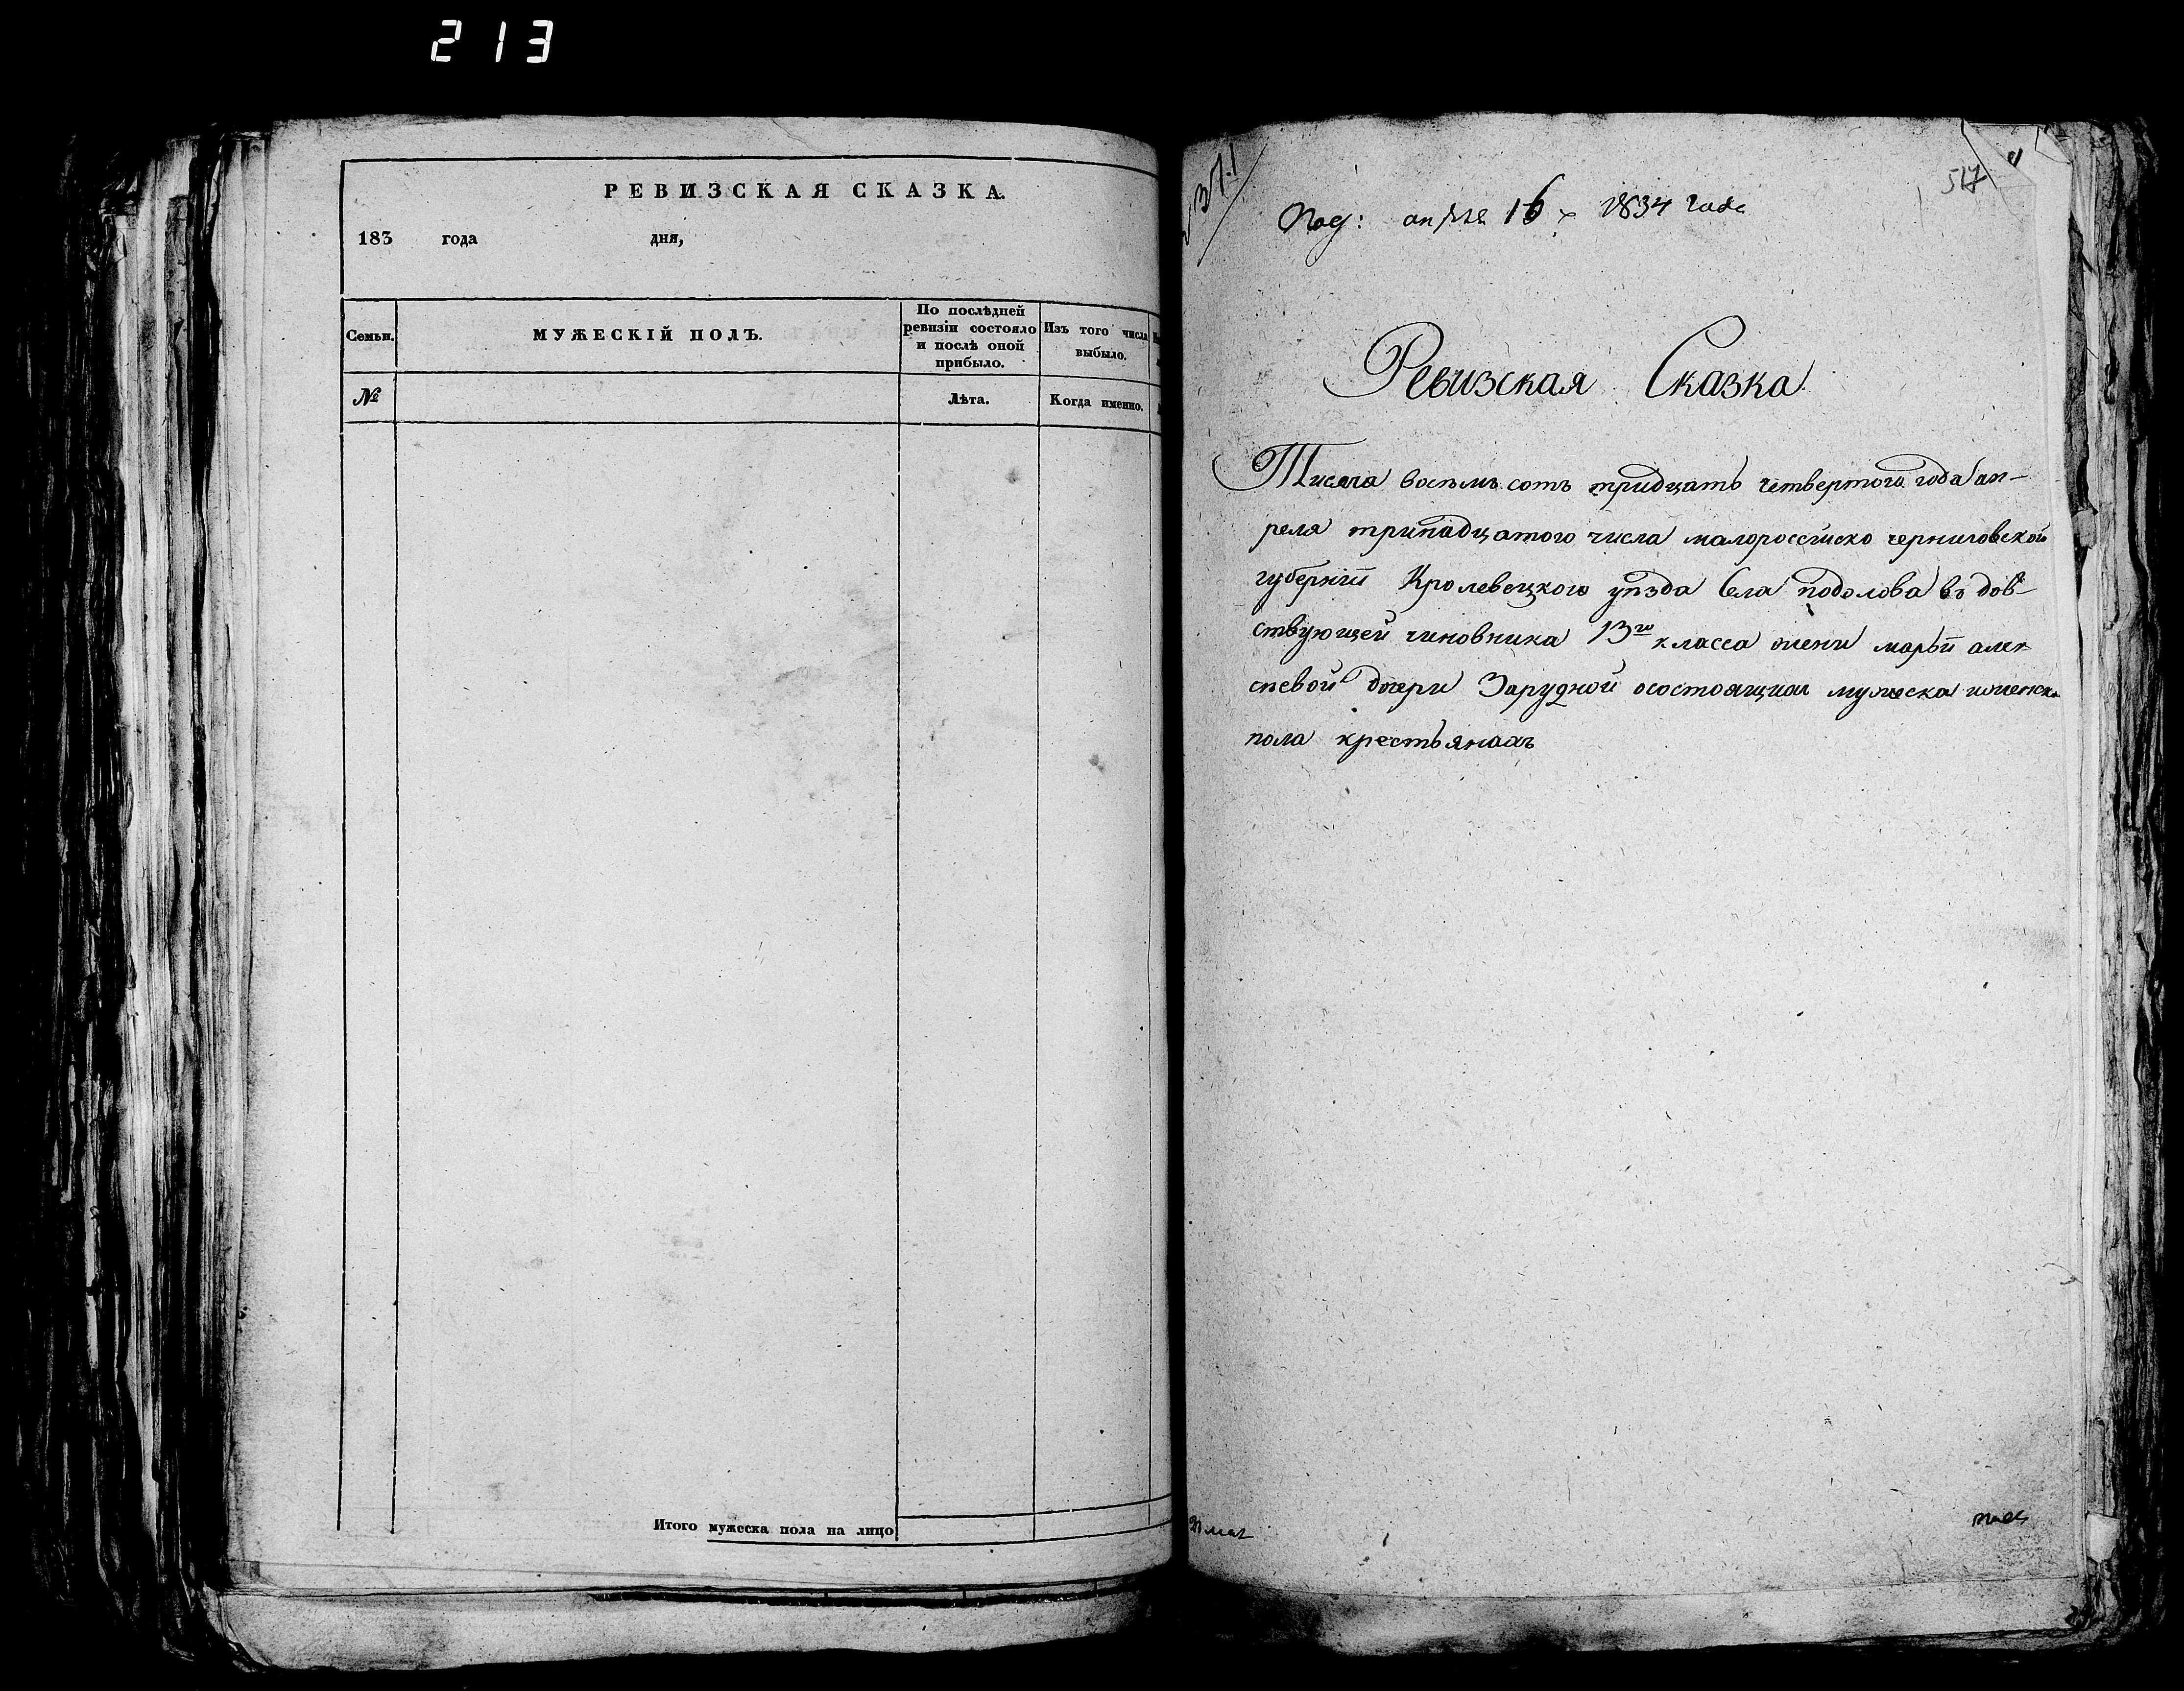 213
РЕВИЗСКАЯ СКАЗКА.
183 года дня,
Семьи.
МУЖЕСКІЙ ПОЛЪ.
По послѣдней
ревизіи состояло
и послѣ оной
прибыло.
Изъ того числа
выбыло.
№
Лѣта.
Когда именно.
Итого мужеска пола на лицо
517
Под: апреля 16 1834 года
Ревизская Сказка
Тисяча восемъ сотъ тридцать четвертого года ап-
реля тринадцатого числа малороссійско черниговской
губерніи Кролевецкого уѣзда Села подолова вдов-
ствующей чиновника 13го класса жени марьи алек
сеевой дочери Зарудной осостоящихъ мужеска иженска
пола крестьянахъ